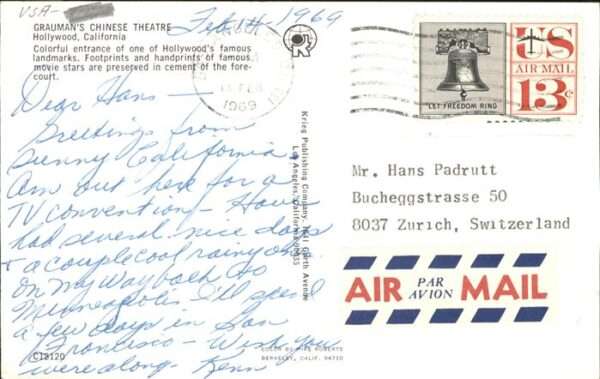 USA-
Feb 14 - 1969
GRAUMAN'S CHINESE THEATRE
Hollywood, California
Colorful entrance of one of Hollywood's famous
landmarks. Footprints and handprints of famous
movie stars are preserved in cement of the fore-
court.
Dear Hans -
Greetings from
Sunny California
Am out here for a
TV convention - Have
had several nice days
+ a couple cool rainy ones
On my way back to
Minneapolis I'll spend
a few days in San
Francisco - Wish you
were along - Kenn
CT2120
COLOR BY MIKE ROBERTS
BERKELEY, CALIF. 94710
Krieg Publishing Company, Garth Avenue
Los Angeles, California
1969
LET FREEDOM RING
US
AIR MAIL
13c
Mr. Hans Padrutt
Bucheggstrasse 50
8037 Zurich, Switzerland
AIR PAR AVION MAIL